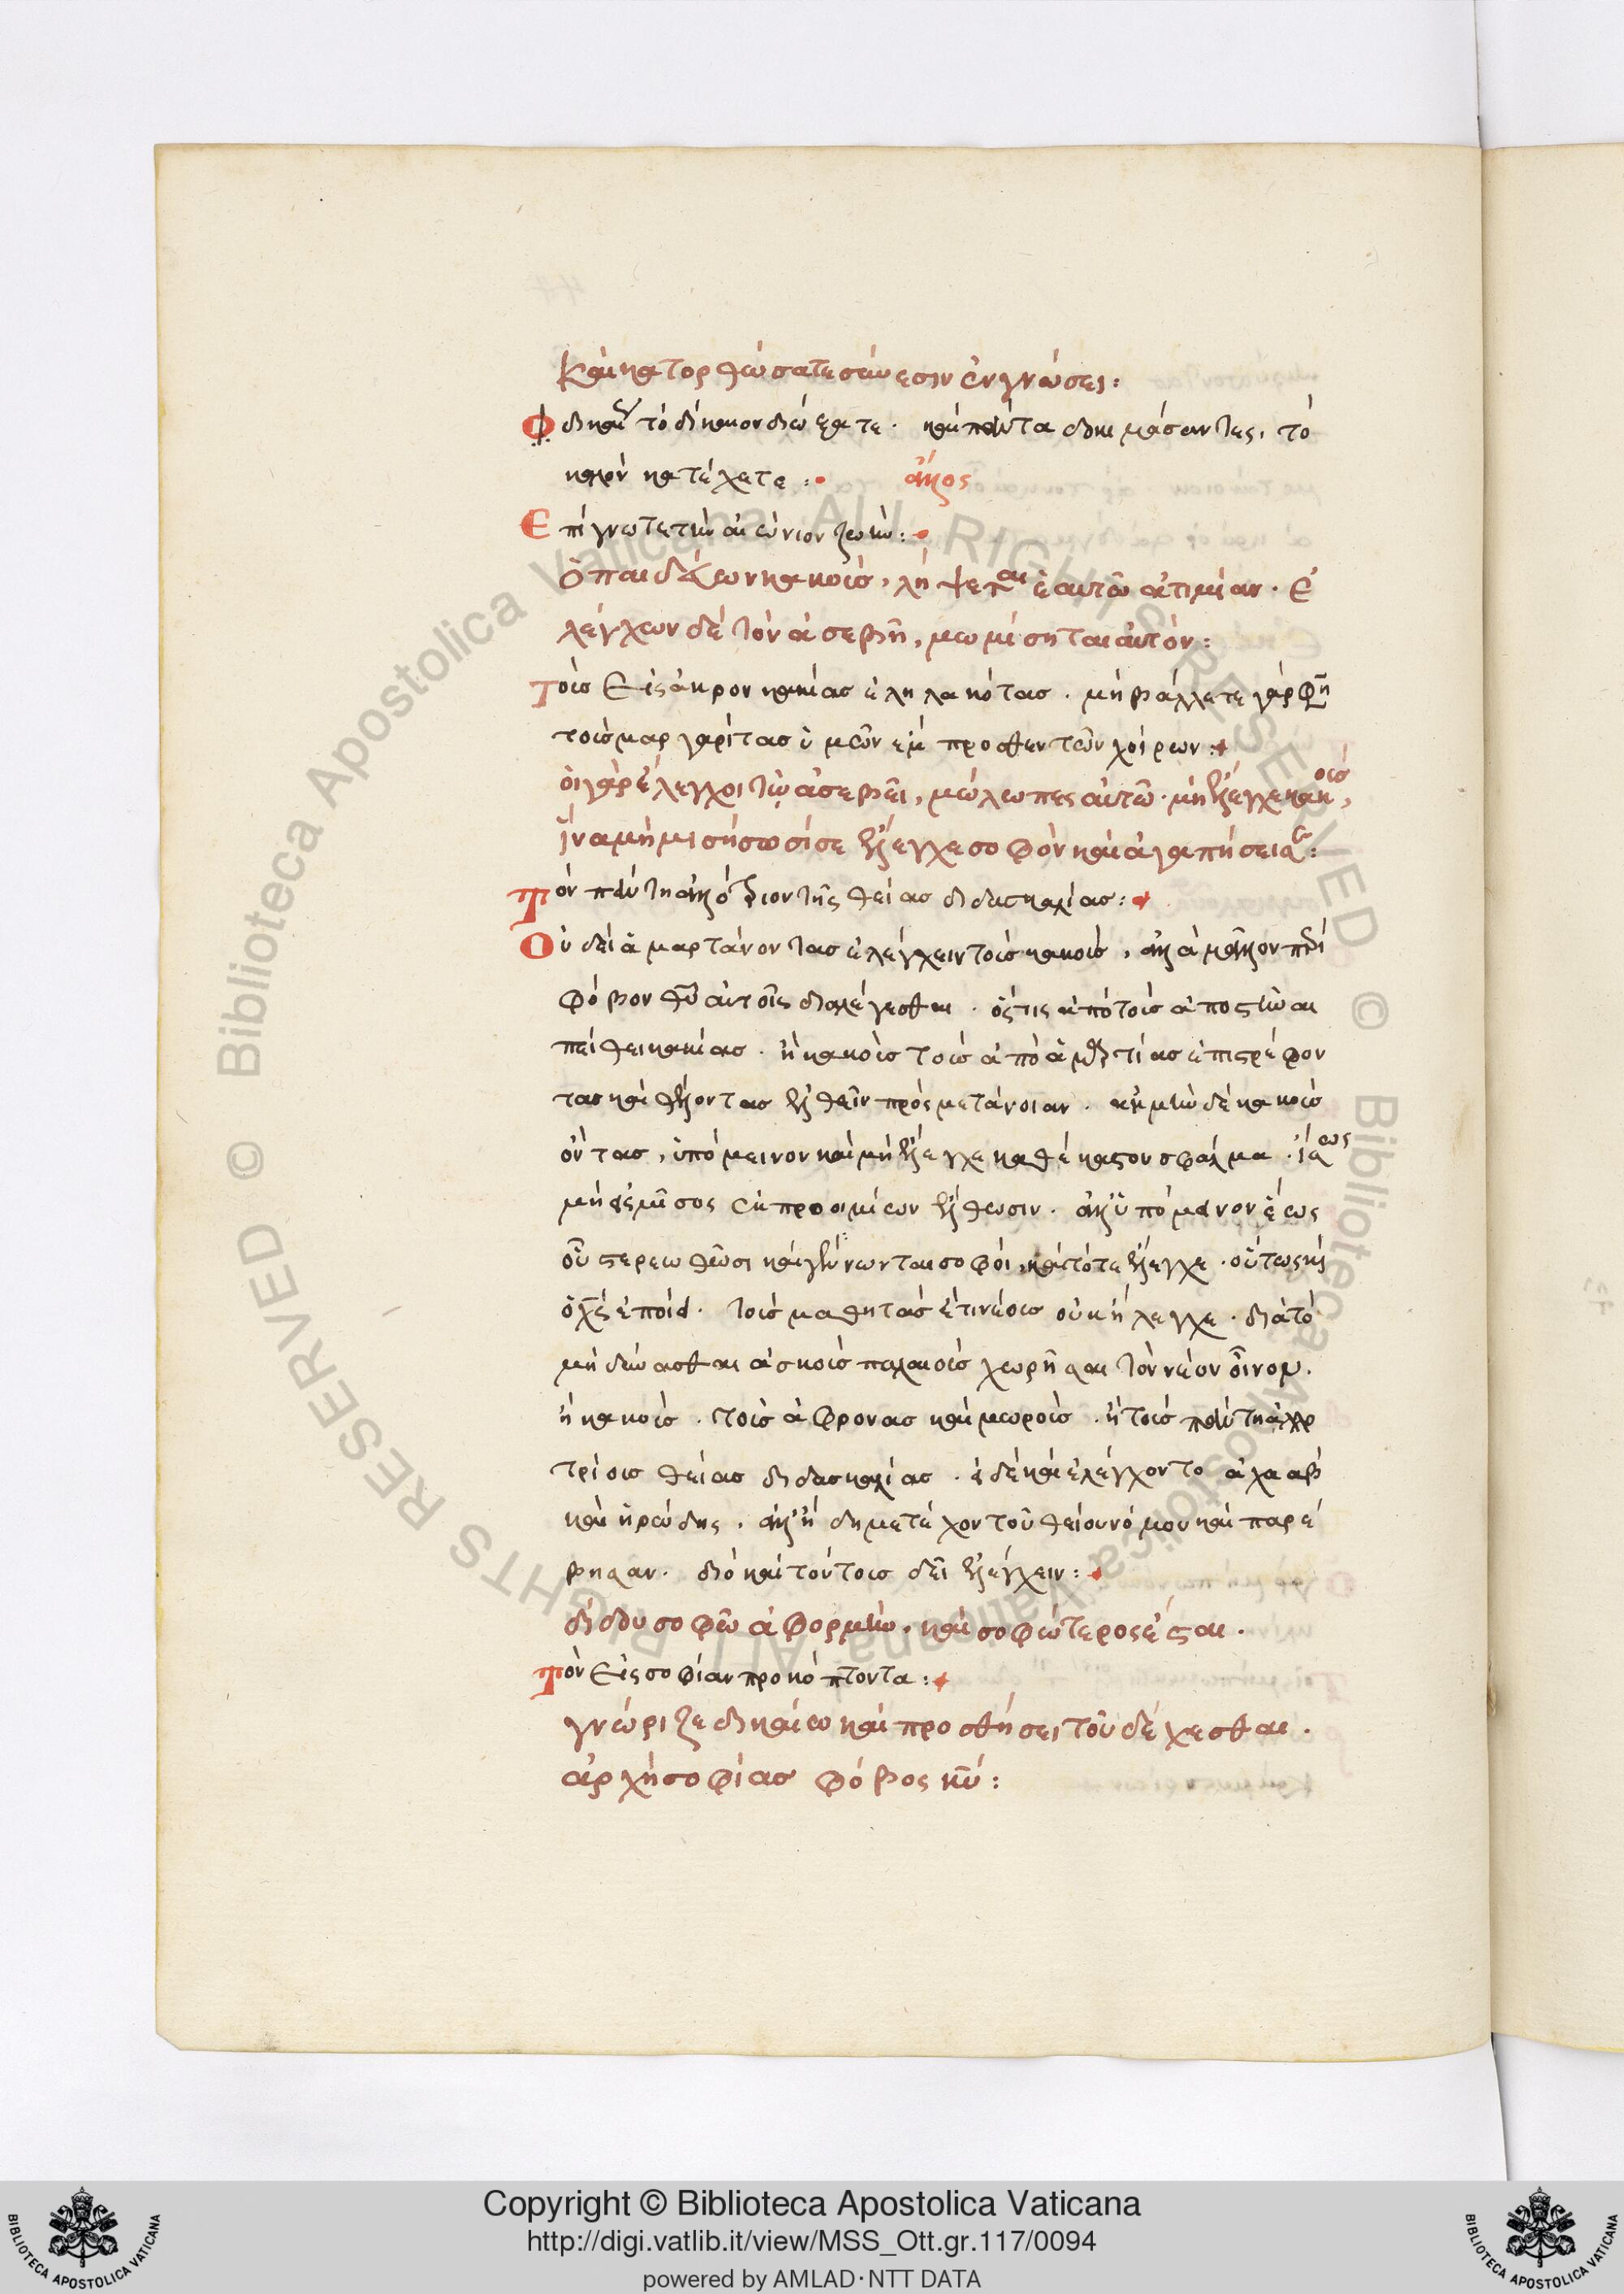 Καὶ κατορθώσατε σύνεσιν ἐν γνώσει:
δικαί τὸ δίκαιον διώξατε. καὶ πάντα δοκιμάσαντες, τὸ
καλὸν κατέχετε: ἄλλος
Ἐπίγνωτε τὴν αἰώνιον ζωήν:
Ὁ παιδεύων κακοὺς, λήψεται ἑαυτῷ ἀτιμίαν. ἐ
λέγχων δὲ τὸν ἀσεβῆ, μωμήσηται αὐτόν:
Τοὺς εἰς ἄκρον κακίας ἐληλακότας. μὴ βάλλετε γάρ φη
τοὺς μαργαρίτας ὑμῶν ἔμπροσθεν τῶν χοίρων:
οἱ γὰρ ἔλεγχοι τῷ ἀσεβεῖ, μώλωπες αὐτῷ. μὴ ἔλεγχε κακοὺς,
ἵνα μὴ μισήσωσί σε ἔλεγχε σοφὸν καὶ ἀγαπήσει σε:
Τὸν πάντη ἀλλότριον τῆς θείας διδασκαλίας:
Οὐ δεῖ ἁμαρτάνοντας ἐλέγχειν τοὺς κακοὺς, ἀλλὰ μᾶλλον περὶ
φόβον θυ αὐτοῖς διαλέγεσθαι. ὅστις ἀπὸ τοὺς ἀποστῆναι
πείθει κακίας. ἢ κακοὺς τοὺς ἀπὸ ἁμαρτίας ἐπιστρέφον
τας καὶ θέλοντας ἐλθεῖν πρὸς μετάνοιαν. ἀκμὴν δὲ κακοὺς
ὄντας, ὑπόμεινον καὶ μὴ ἔλεγχε καθέκαστον σφάλμα. ἴσως
μὴ εἰς μῖσος ἐκ προοιμίων ἔλθωσιν. ἀλλ' ὑπόμεινον ἕως
οὗ στερεωθῶσι καὶ γένωνται σοφοί, καὶ τότε ἔλεγχε. οὕτως καὶ
ὁ χς ἐποίει. τοὺς μαθητὰς ἔτι νέους οὐκ ἤλεγχε. διὰ τὸ
μὴ δύνασθαι ἀσκοὺς παλαιοὺς χωρῆσαι τὸν νέον οἶνον.
ἢ κακοὺς. τοὺς ἄφρονας καὶ μωροὺς. ἢ τοὺς πάντη ἀλλο
τρίους θείας διδασκαλίας. εἰ δὲ καὶ ἐλέγχοντο ἀχαὰβ
καὶ ἡρώδης. ἀλλ' ἤδη μετέχον τοῦ θείου νόμου καὶ παρέ
βησαν. διὸ καὶ τούτους δεῖ ἐλέγχειν:
δίδου σοφῷ ἀφορμὴν, καὶ σοφώτερος ἔσται.
Τὸν εἰς σοφίαν προκόπτοντα:
γνώριζε δικαίῳ καὶ προσθήσει τοῦ δέχεσθαι.
ἀρχὴ σοφίας φόβος κυ:
Copyright © Biblioteca Apostolica Vaticana
http://digi.vatlib.it/view/MSS_Ott.gr.117/0094
powered by AMLAD·NTT DATA